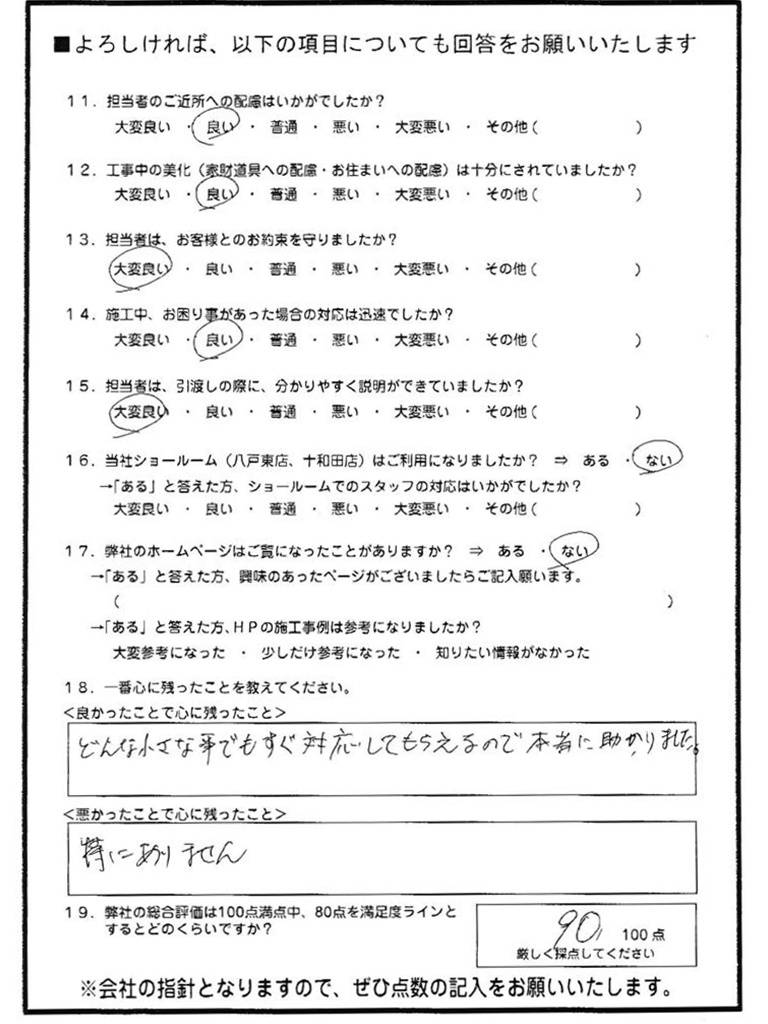 ■よろしければ、以下の項目についても回答をお願いいたします
11．担当者のご近所への配慮はいかがでしたか？
大変良い ・ 良い ・ 普通 ・ 悪い ・ 大変悪い ・ その他（ ）
12．工事中の美化（家財道具への配慮・お住まいへの配慮）は十分にされていましたか？
大変良い ・ 良い ・ 普通 ・ 悪い ・ 大変悪い ・ その他（ ）
13．担当者は、お客様とのお約束を守りましたか？
大変良い ・ 良い ・ 普通 ・ 悪い ・ 大変悪い ・ その他（ ）
14．施工中、お困り事があった場合の対応は迅速でしたか？
大変良い ・ 良い ・ 普通 ・ 悪い ・ 大変悪い ・ その他（ ）
15．担当者は、引渡しの際に、分かりやすく説明ができていましたか？
大変良い ・ 良い ・ 普通 ・ 悪い ・ 大変悪い ・ その他（ ）
16．当社ショールーム（八戸東店、十和田店）はご利用になりましたか？ ⇒ ある ・ ない
→「ある」と答えた方、ショールームでのスタッフの対応はいかがでしたか？
大変良い ・ 良い ・ 普通 ・ 悪い ・ 大変悪い ・ その他（ ）
17．弊社のホームページはご覧になったことがありますか？ ⇒ ある ・ ない
→「ある」と答えた方、興味のあったページがございましたらご記入願います。
（ ）
→「ある」と答えた方、HPの施工事例は参考になりましたか？
大変参考になった ・ 少しだけ参考になった ・ 知りたい情報がなかった
18．一番心に残ったことを教えてください。
＜良かったことで心に残ったこと＞
どんな小さな事でもすぐ対応してもらえるので本当に助かりました。
＜悪かったことで心に残ったこと＞
特にありません
19．弊社の総合評価は100点満点中、80点を満足度ラインと
するとどのくらいですか？
90/ 100点
厳しく採点してください
※会社の指針となりますので、ぜひ点数の記入をお願いいたします。